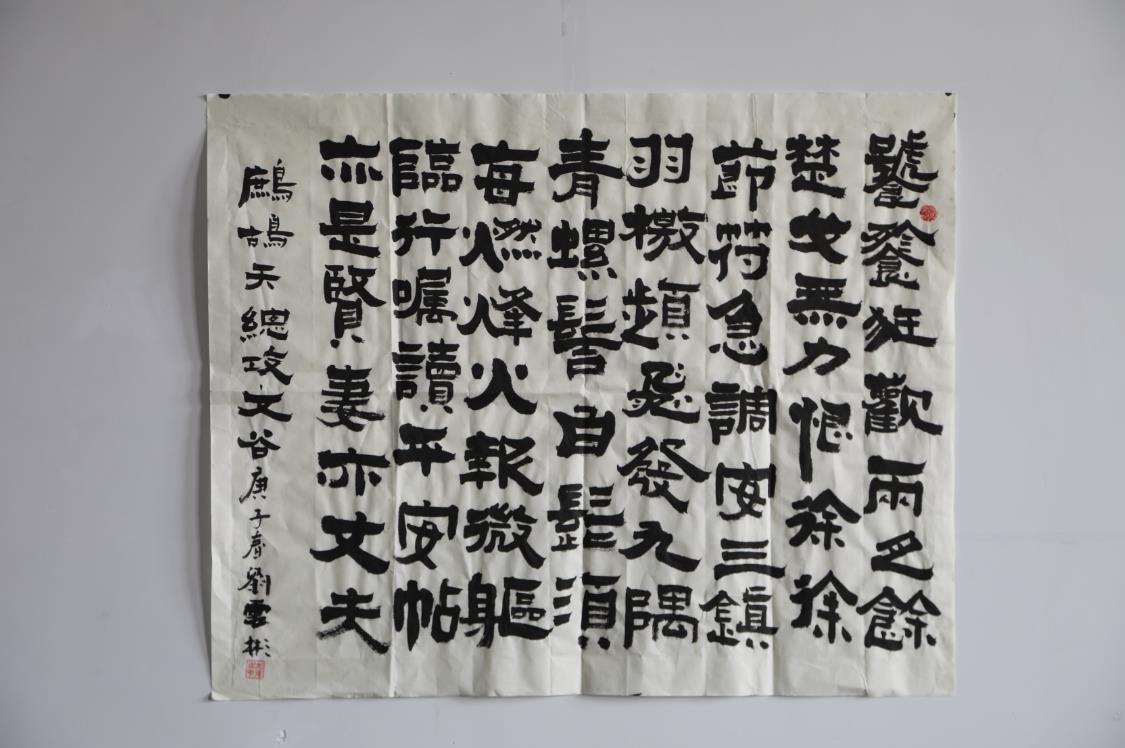 饕餮狂歡兩月餘
楚無力恨徐徐
節符急調安三鎮
羽檄頻飛發九隅
青螺髻白髭須
每燃烽火報微軀
臨行囑讀平安帖
亦是賢妻亦丈夫
鷓鴣天總攻文谷庚子春劉雲彬